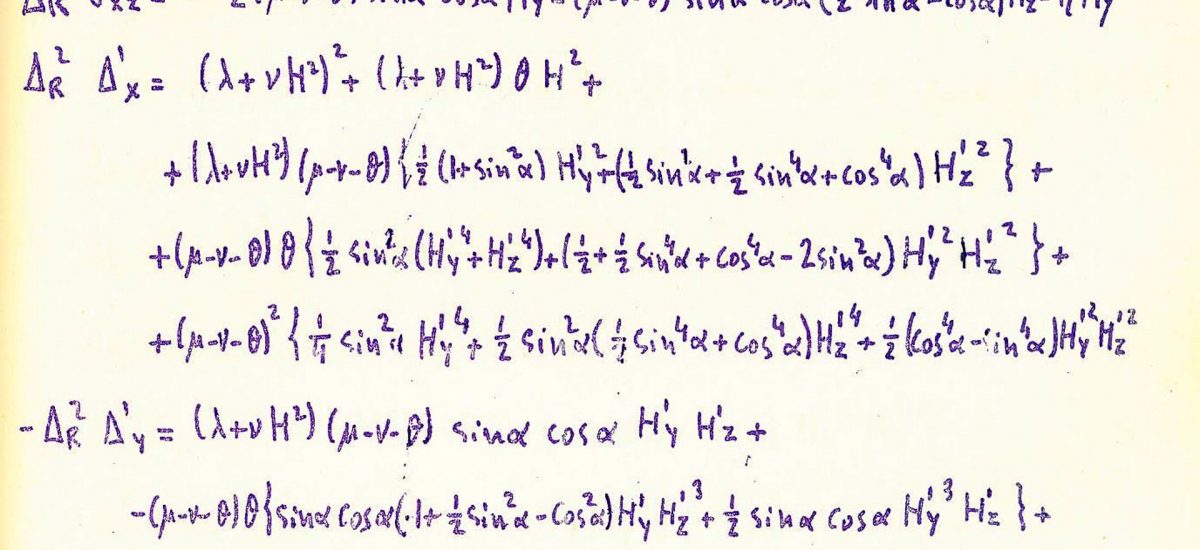 Δ_R² Δ'_x = (λ+νH²)² + (λ+νH²) θ H² +
+ (λ+νH²) (μ-ν-θ) { ½ (1+sin²α) H'_y² + (½ sin²α + ½ sin⁴α + cos⁴α) H'_z² } +
+ (μ-ν-θ) θ { ½ sin²α (H'_y⁴ + H'_z⁴) + (½ + ½ sin⁴α + cos⁴α - 2 sin²α) H'_y² H'_z² } +
+ (μ-ν-θ)² { ¼ sin²α H'_y⁴ + ½ sin²α (½ sin⁴α + cos⁴α) H'_z⁴ + ½ (cos⁴α - sin⁴α) H'_y² H'_z²
- Δ_R² Δ'_y = (λ+νH²) (μ-ν-θ) sinα cosα H'_y H'_z +
- (μ-ν-θ) θ { sinα cosα (-1 + ½ sin²α - cos²α) H'_y H'_z³ + ½ sinα cosα H'_y³ H'_z } +